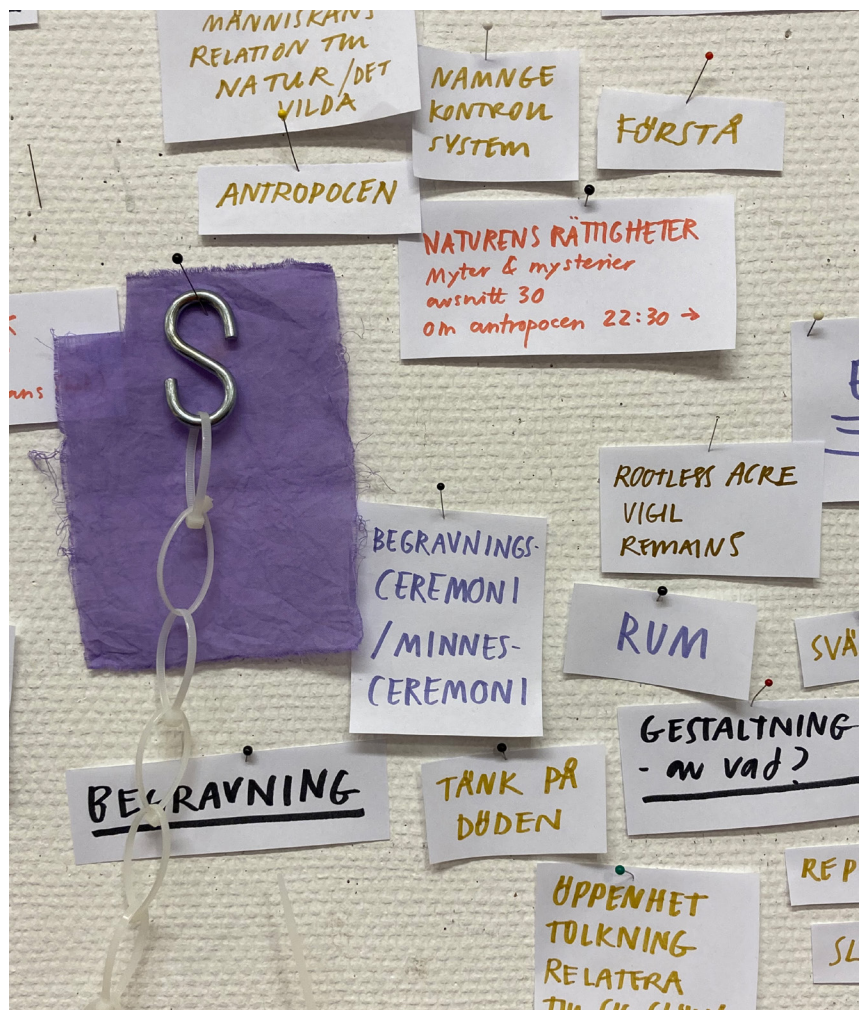 MÄNNISKANS
RELATION TILL
NATUR/DET
VILDA
NAMNGE
KONTROLL
SYSTEM
FÖRSTÅ
ANTROPOCEN
NATURENS RÄTTIGHETER
Myter & mysterier
avsnitt 30
om antropocen 22:30 →
ans
ROOTLESS ACRE
VIGIL
REMAINS
BEGRAVNINGS-
CEREMONI
/MINNES-
CEREMONI
RUM
SVÄ
GESTALTNING
- av vad?
BEGRAVNING
TÄNK PÅ
DÖDEN
REP
ÖPPENHET
TOLKNING
RELATERA
SL